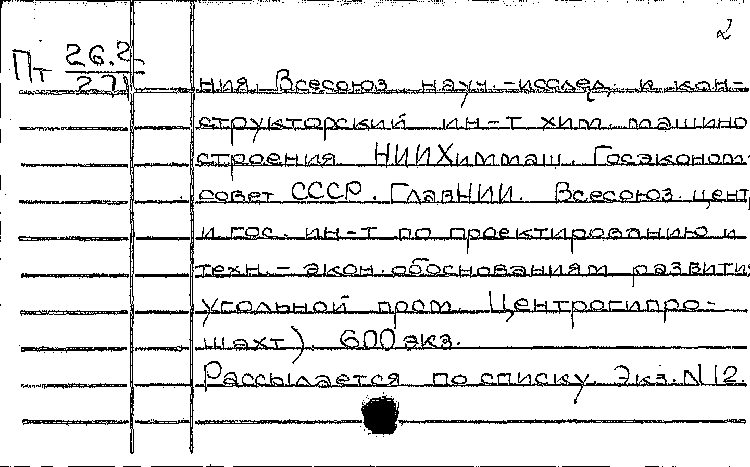 2
Пт 26.2
271
ния. Всесоюз. науч.-исслед. и кон-
структорский ин-т хим. машино
строения. НИИХиммаш. Госэконом
совет СССР. ГлавНИИ. Всесоюз. центр
и гос. ин-т по проектированию и
техн.-экон. обоснованиям развития
угольной пром. Центрогипро-
шахт). 600 экз.
Рассылается по списку. Экз. N 12.